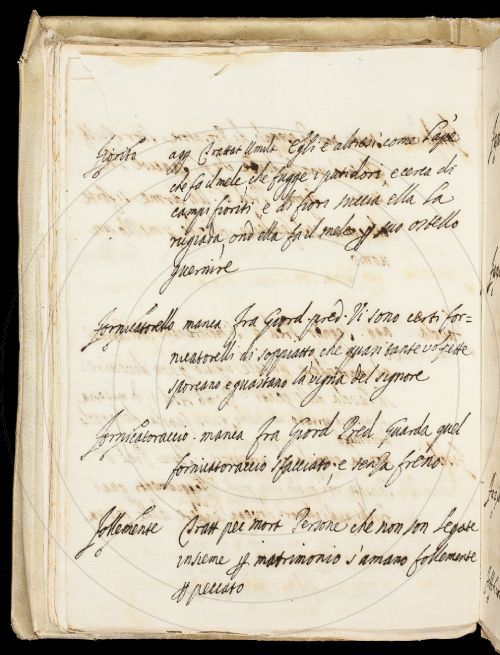 fiorito agg Trattat Umilt Egli è altresì come l'ape
che fa il mele, che fugge i putidori, e cerca di
campi fioriti, e di fiori succia ella la
rugiada, ond'ella fa il mele p suo ostello
guernire
fornicatorello manca. fra Giord. pred. Vi sono certi for=
nicatorelli di soppiatto che quasi tante volpette
sporcano e guastano la vigna del signore
fornicatoraccio. manca fra Giord Pred. guarda quel
fornicatoraccio sfacciato, e senza freno
follemente Tratt pec mort Persone che non son legate
insieme p matrimonio s'amano follemente
p peccato